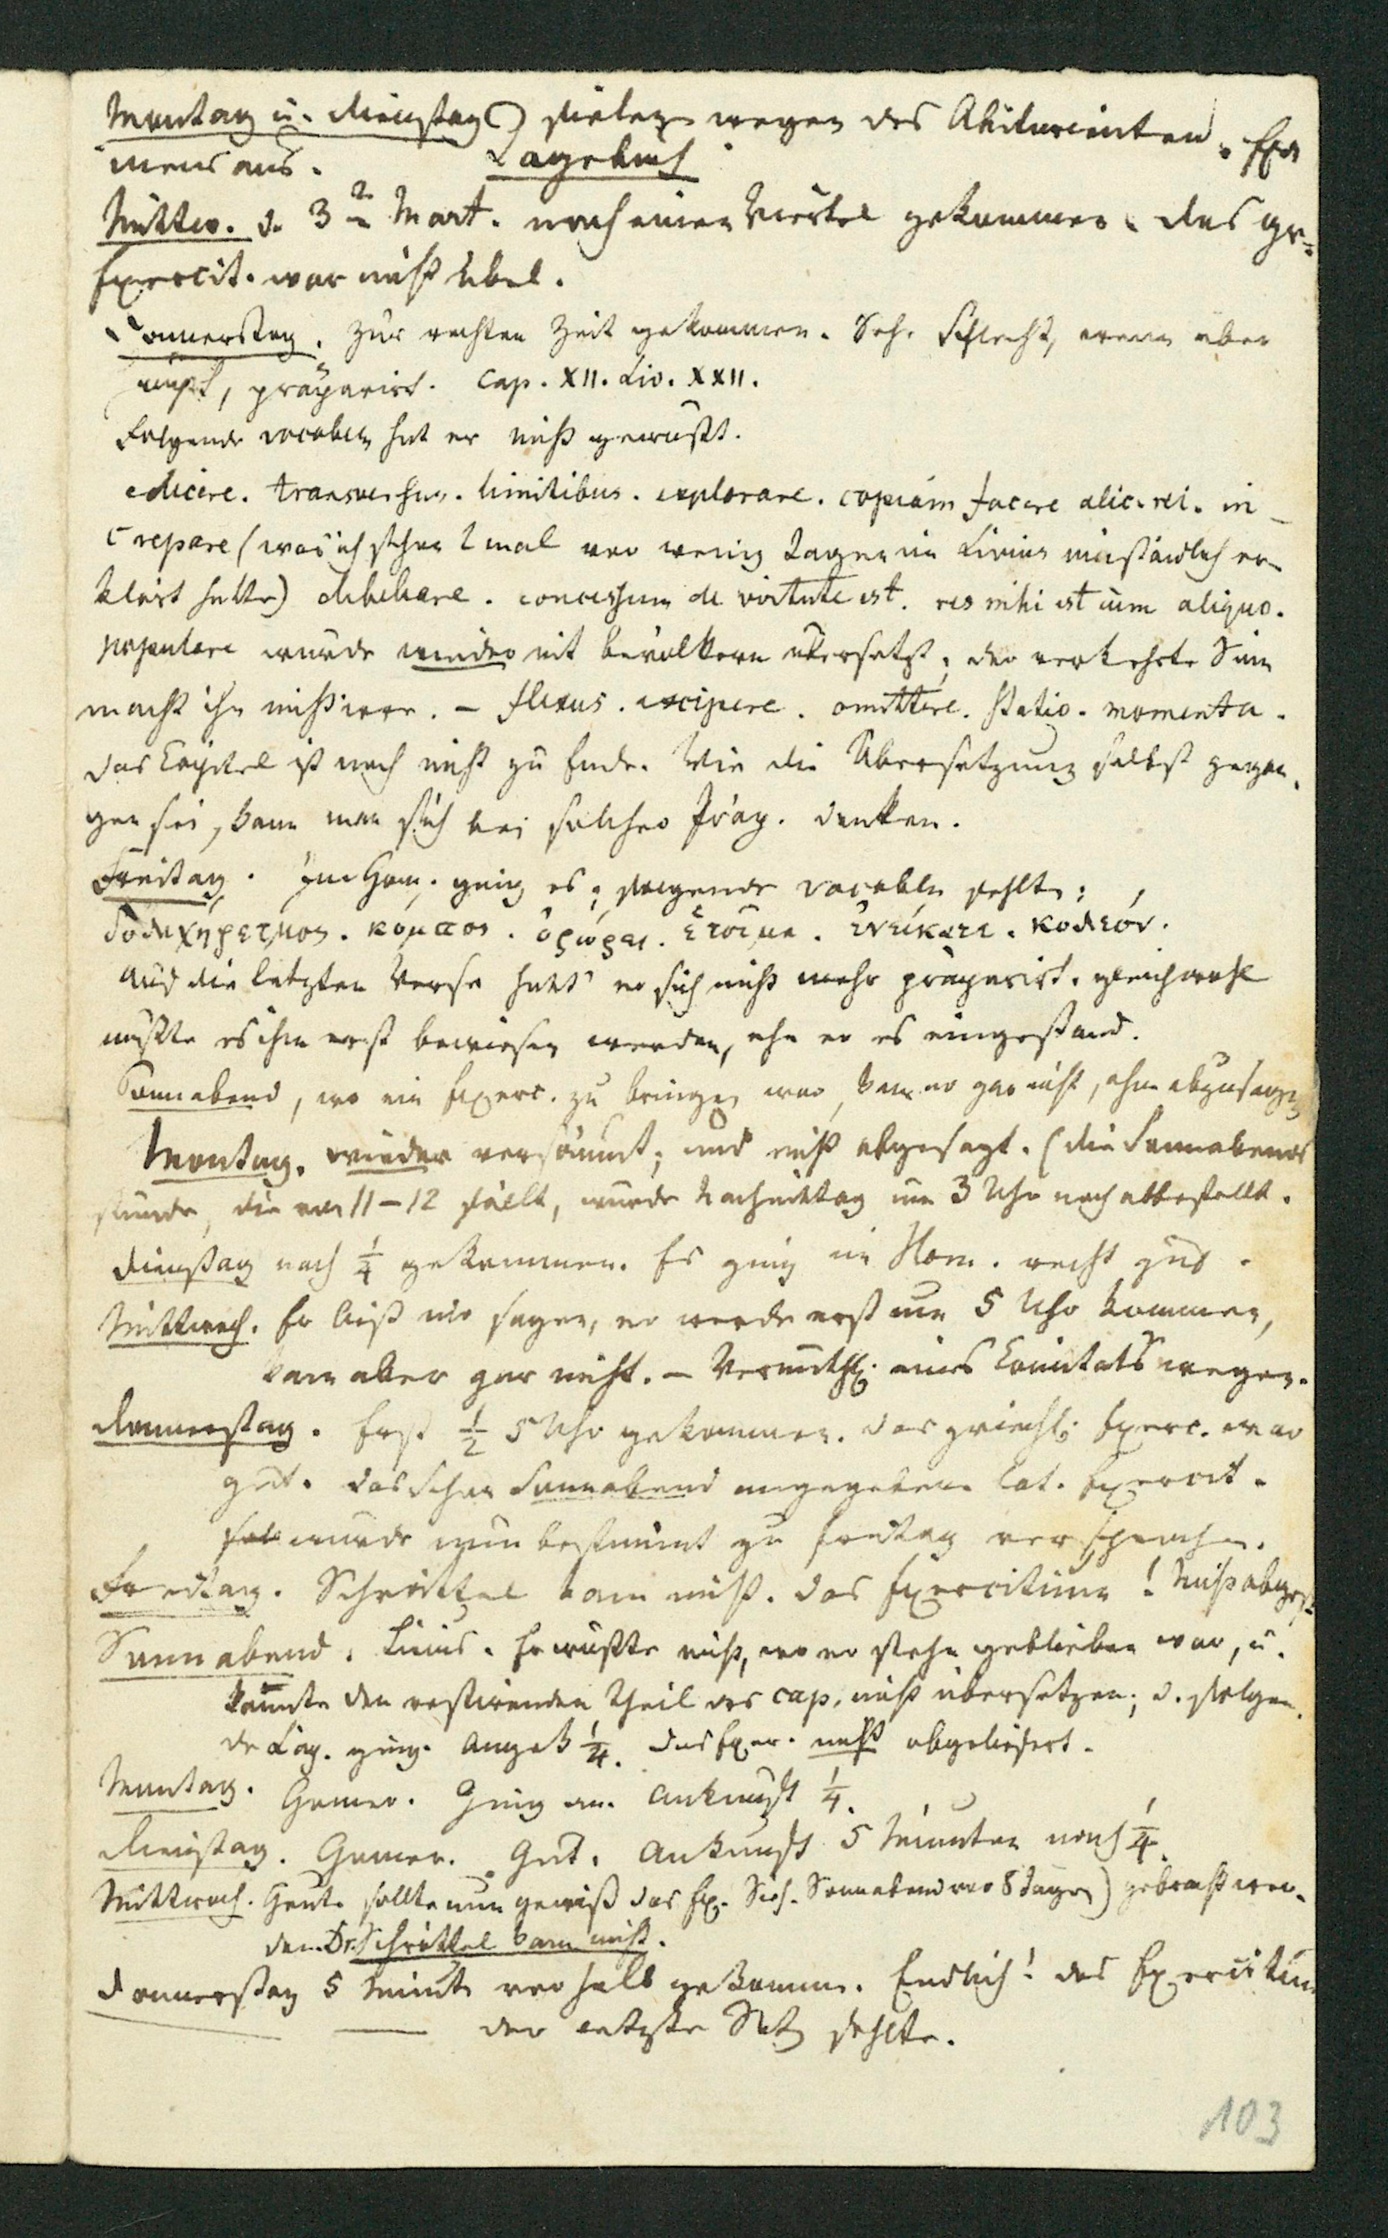 Montag u. Dienstag fielen wegen des Abiturienten-Exa
mens aus.
Tagebuch
Mittw. d. 3n Mart. nach einem Viertel gekommen. Das gr.
Exercit. war nicht übel.
Donnerstag. Zur rechten Zeit gekommen. Sehr schlecht, wenn aber
nicht, präparirt. Cap. XII. Liv. XXII.
Folgende vocabeln hat er nicht gewußt.
edicere. transversus. limitibus. explorare. copiam facere alic. rei. in-
crepare (was ich schon 2 mal vor wenig Tagen im Livius umständlich er-
klärt hatte) debellare. concessum de virtute est. res mihi est cum aliquo.
populare wurde wieder mit bevölkern übersetzt; der verkehrte Sinn
macht ihn nicht irre. – flexus. excipere. omittere. statio. momenta.
Das Capitel ist noch nicht zu Ende. Wie die Übersetzung selbst gegan-
gen sei, kann man sich bei solcher Präp. denken.
Freitag. Im Hom. ging es; folgende vocabeln fehlten:
δολιχήρετμος. κόμπος. ὀρώρει. ἑτοῖμα. ἐνείκατε. κολεόν.
Auf die letzten Verse hatt' er sich nicht mehr präparirt. gleichwohl
mußte es ihm erst bewiesen werden, ehe er es eingestand.
Sonnabend, wo ein Exerc. zu bringen war, kam er gar nicht, ohne abzusagen
Montag. wieder versäumt; und nicht abgesagt. (die Sonnabends
stunde, die von 11–12 fällt, wurde Nachmittag um 3 Uhr noch abbestellt.
Dienstag nach 1/4 gekommen. Es ging im Hom. recht gut.
Mittwoch. Er ließ mir sagen, er werde erst um 5 Uhr kommen,
kam aber gar nicht. – Vermuthl. eines Comitats wegen.
Donnerstag. Erst 1/2 5 Uhr gekommen. das griech. Exerc. war
gut. das schon Sonnabend angegebene lat. Exercit.
wurde nun bestimmt zu Freitag versprochen.
Freitag. Schröttel kam nicht. das Exercitium! Nicht abges.
Sonnabend. Livius. Er wußte nicht, wo er stehn geblieben war, u.
konnte den restirenden Theil des cap. nicht übersetzen; d. folgen
de Cap. ging. 1/4. das Exer. nicht abgeliefert.
Montag. Homer. Ging an. Ankunft 1/4.
Dienstag. Homer. Gut. Ankunft 5 Minuten nach 1/4.
Mittwoch. Heute sollte nun gewiß das Ex. Sonnabend vor 8 Tagen) gebracht wer-
den. Dr. Schröttel kam nicht.
Donnerstag 5 Minut. vor halb gekommen. Endlich! das Exercitium
– der letzte Satz fehlte.
103